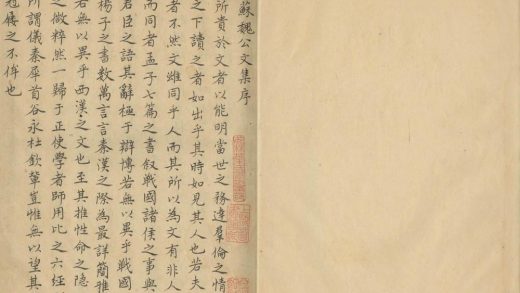 蘇魏公文集序
所貴於文者以能明當世之務達羣倫之情
之下讀之者如出乎其時如見其人也若夫
者不然文雖同乎人而其所以為文有非人
而同者孟子七篇之書叙戰國諸侯之事與
君臣之語其辭極于辯博若無以異乎戰國
楊子之書數萬言言秦漢之際為最詳簡雅
若無以異乎西漢之文也至其推性命之隱
之微粹然一歸于正使學者師用比之六經
所謂儀秦犀首谷永杜欽輩豈惟無以望其
冠屨之不侔也